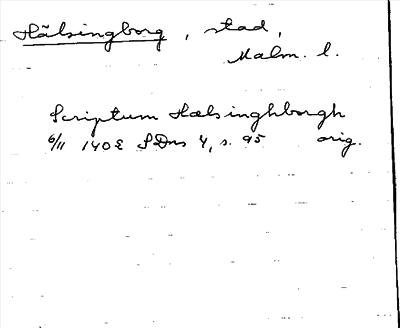 Hälsingborg, stad,
Malm. l.
Scriptum Hælsinghborgh
6/11 1402 SDns 4, s. 95 orig.